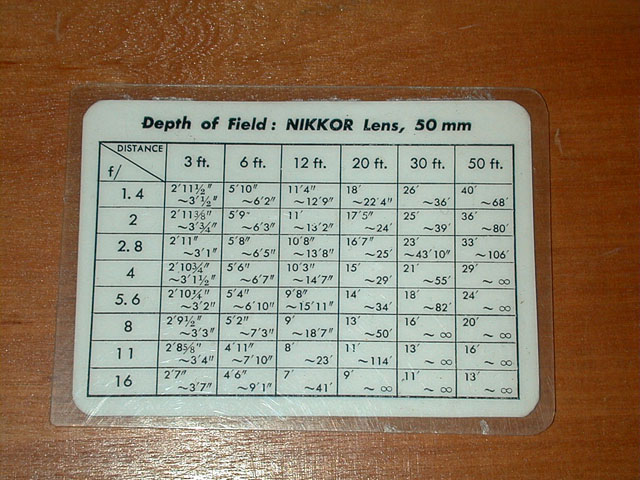 Depth of Field : NIKKOR Lens, 50 mm
DISTANCE 3 ft. 6 ft. 12 ft. 20 ft. 30 ft. 50 ft.
f/
1.4 2'11½" 5'10" 11'4" 18' 26' 40'
~3'½" ~6'2" ~12'9" ~22'4" ~36' ~68'
2 2'11⅜" 5'9" 11' 17'5" 25' 36'
~3'¾" ~6'3" ~13'2" ~24' ~39' ~80'
2.8 2'11" 5'8" 10'8" 16'7" 23' 33'
~3'1" ~6'5" ~13'8" ~25' ~43'10" ~106'
4 2'10¾" 5'6" 10'3" 15' 21' 29'
~3'1½" ~6'7" ~14'7" ~29' ~55' ~∞
5.6 2'10¼" 5'4" 9'8" 14' 18' 24'
~3'2" ~6'10" ~15'11" ~34' ~82' ~∞
8 2'9½" 5'2" 9' 13' 16' 20'
~3'3" ~7'3" ~18'7" ~50' ~∞ ~∞
11 2'8⅝" 4'11" 8' 11' 13' 16'
~3'4" ~7'10" ~23' ~114' ~∞ ~∞
16 2'7" 4'6" 7' 9' 11' 13'
~3'7" ~9'1" ~41' ~∞ ~∞ ~∞